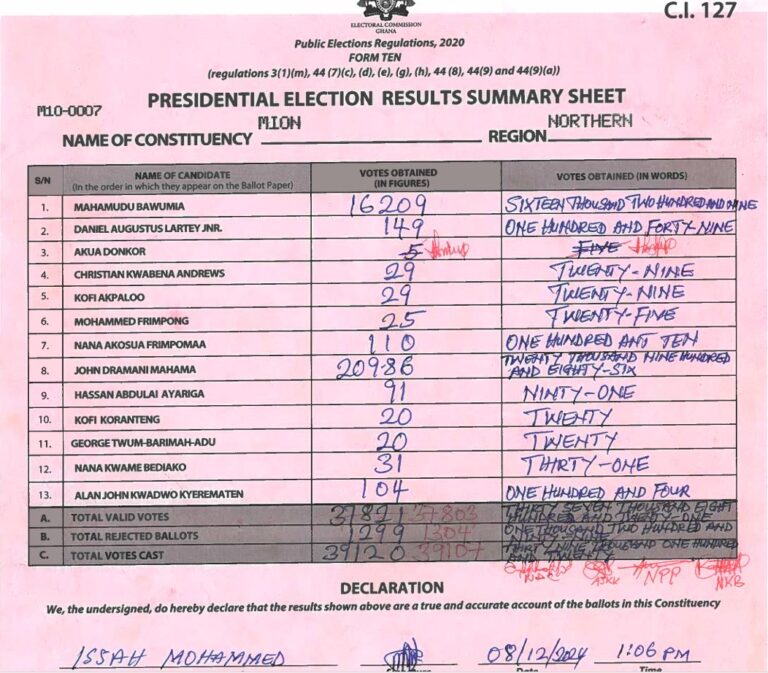 C.I. 127
ELECTORAL COMMISSION
GHANA
Public Elections Regulations, 2020
FORM TEN
(regulations 3(1)(m), 44 (7)(c), (d), (e), (g), (h), 44 (8), 44(9) and 44(9)(a))
M10-0007
PRESIDENTIAL ELECTION RESULTS SUMMARY SHEET
NAME OF CONSTITUENCY MION REGION NORTHERN
S/N NAME OF CANDIDATE (In the order in which they appear on the Ballot Paper) VOTES OBTAINED (IN FIGURES) VOTES OBTAINED (IN WORDS)
1. MAHAMUDU BAWUMIA 16209 SIXTEEN THOUSAND TWO HUNDRED AND NINE
2. DANIEL AUGUSTUS LARTEY JNR. 149 ONE HUNDRED AND FORTY-NINE
3. AKUA DONKOR 5 FIVE
4. CHRISTIAN KWABENA ANDREWS 29 TWENTY-NINE
5. KOFI AKPALOO 29 TWENTY-NINE
6. MOHAMMED FRIMPONG 25 TWENTY-FIVE
7. NANA AKOSUA FRIMPOMAA 110 ONE HUNDRED ANT TEN
8. JOHN DRAMANI MAHAMA 20986 TWENTY THOUSAND NINE HUNDRED AND EIGHTY-SIX
9. HASSAN ABDULAI AYARIGA 91 NINTY-ONE
10. KOFI KORANTENG 20 TWENTY
11. GEORGE TWUM-BARIMAH-ADU 20 TWENTY
12. NANA KWAME BEDIAKO 31 THIRTY-ONE
13. ALAN JOHN KWADWO KYEREMATEN 104 ONE HUNDRED AND FOUR
A. TOTAL VALID VOTES 37821 37803 THIRTY SEVEN THOUSAND EIGHT HUNDRED AND TWENTY-ONE
B. TOTAL REJECTED BALLOTS 1299 1304 ONE THOUSAND TWO HUNDRED AND NINETY-NINE
C. TOTAL VOTES CAST 39120 39107 THIRTY NINE THOUSAND ONE HUNDRED AND TWENTY
NDC AJKK NPP NKB
DECLARATION
We, the undersigned, do hereby declare that the results shown above are a true and accurate account of the ballots in this Constituency
ISSAH MOHAMMED 08/12/2024 1:06 PM
Date Time